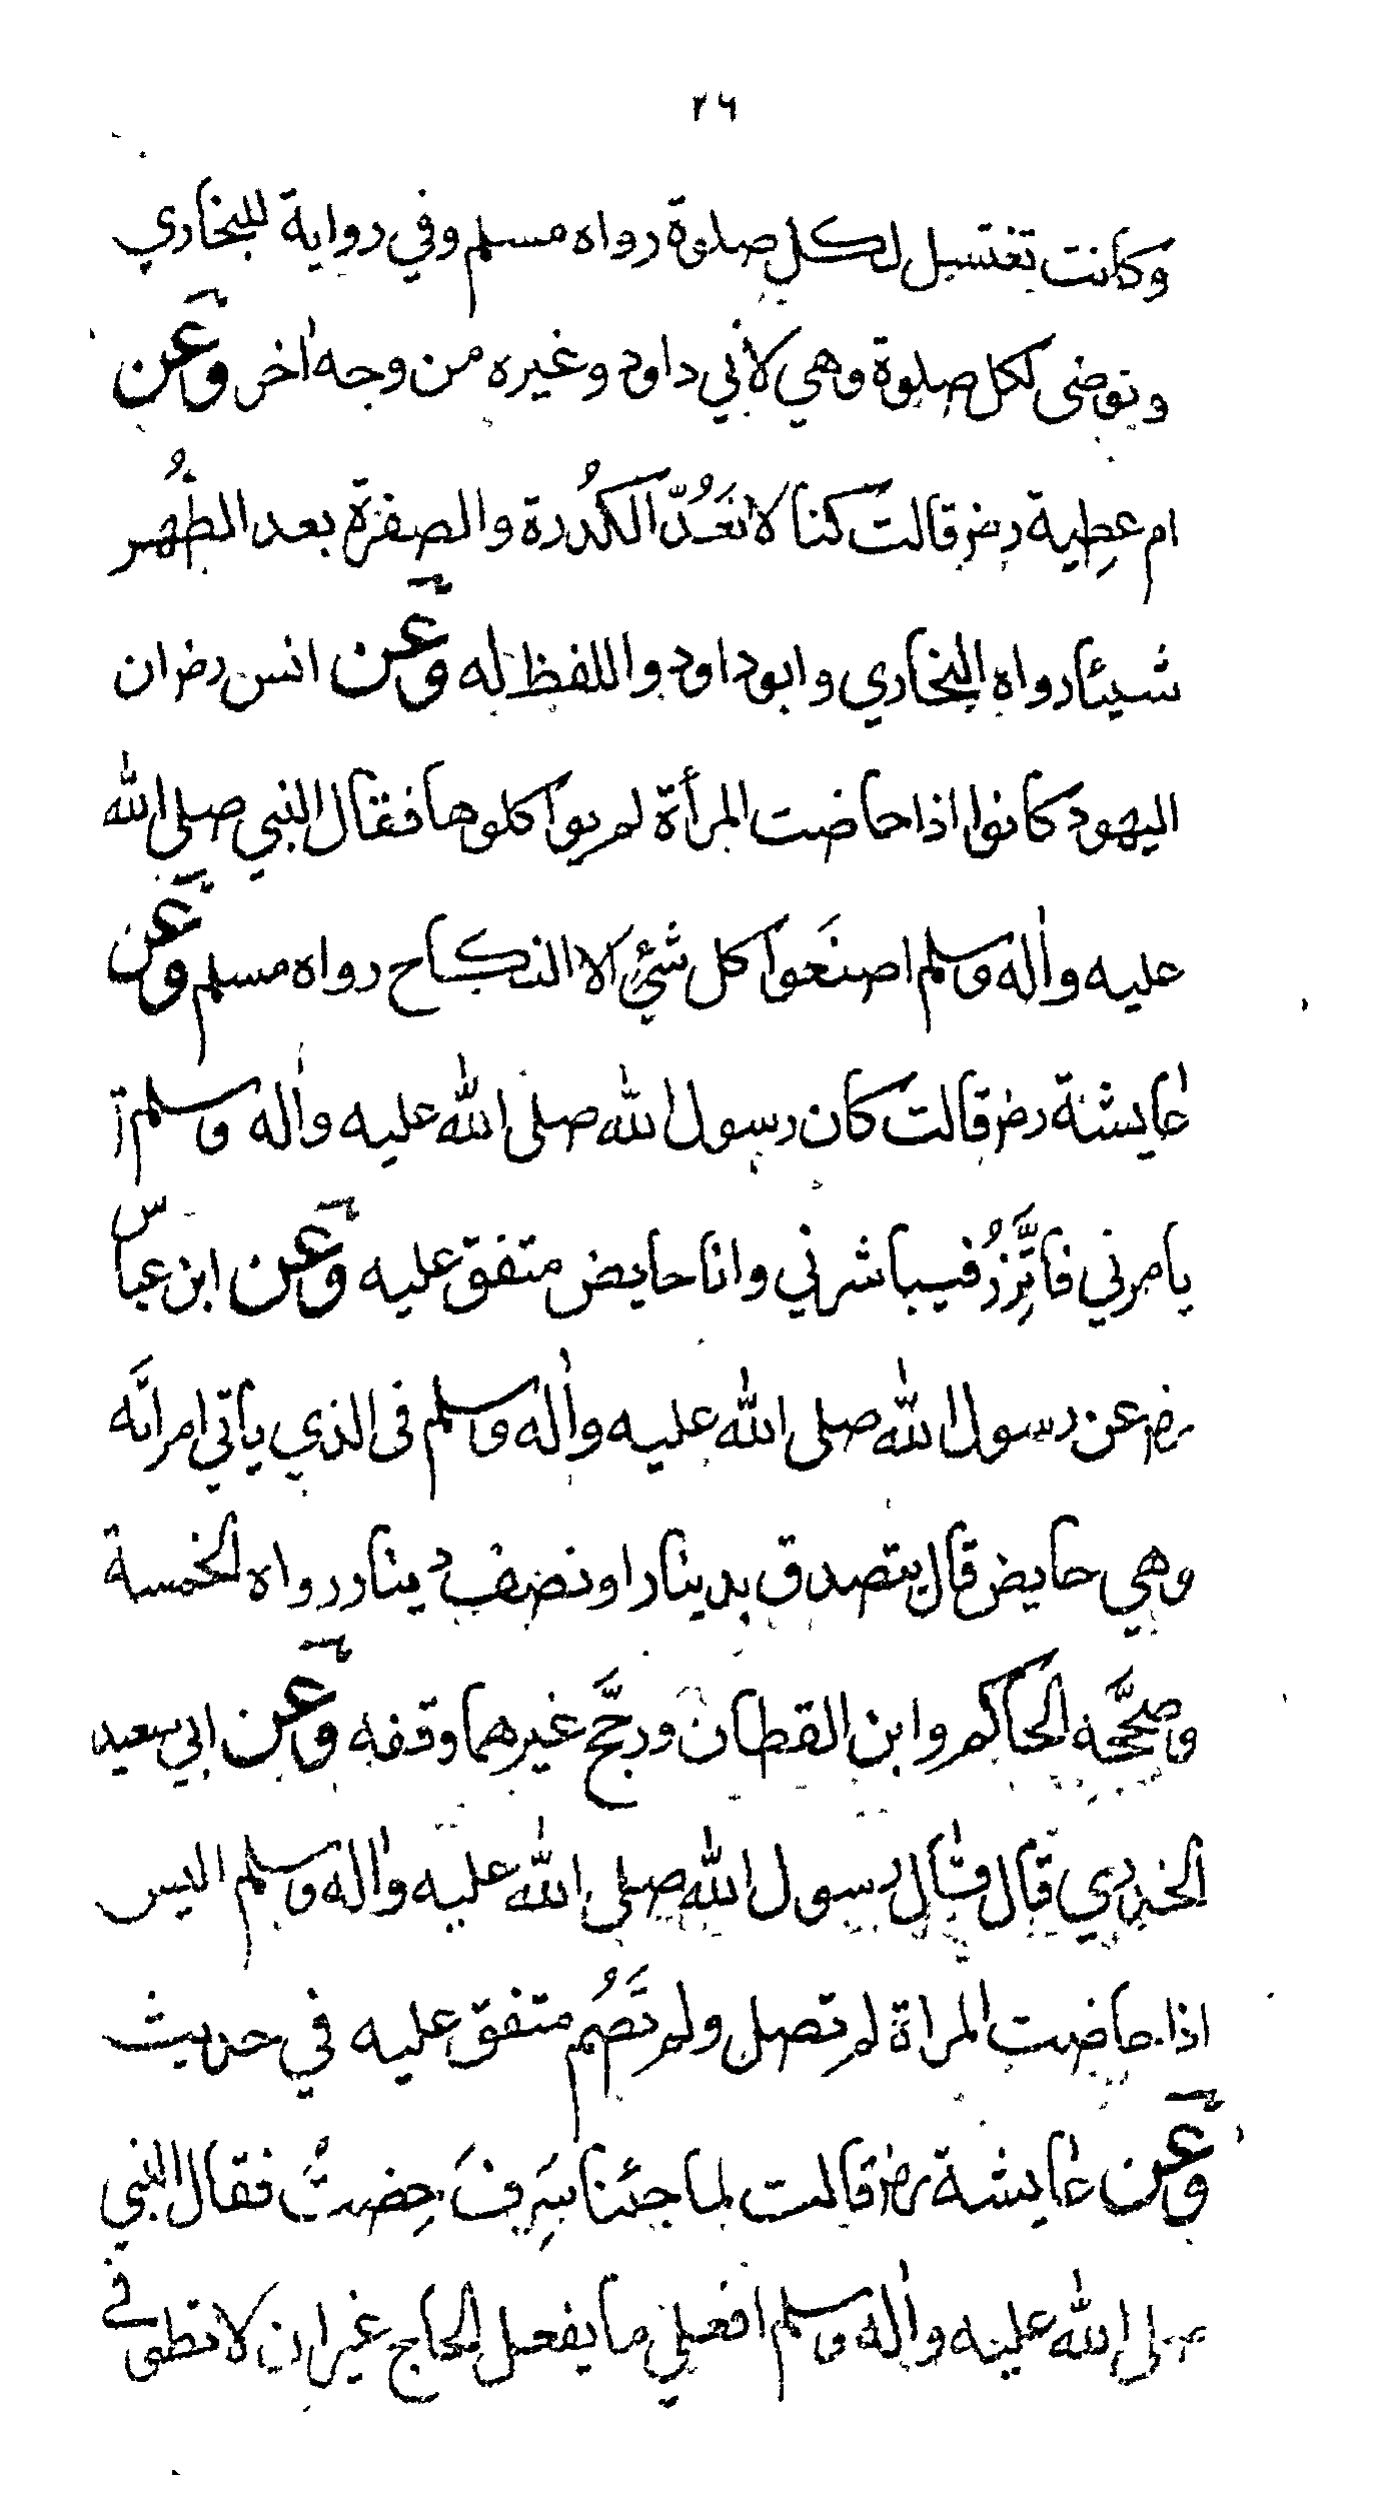 ٢٦
وكانت تغتسل لكل صلوة رواه مسلم وفي رواية للبخاري
وتوضى لكل صلوة وهي لأبي داود وغيره من وجه اٰخر وعن
ام عطية رضر قالت كنا لا نَعُدّ الكُدرة والصفرة بعد الطُهر
شيئا رواه البخاري وابو داود واللفظ له وعن انس رضر ان
اليهود كانوا اذا حاضت المرأة لم يواكلوها فقال النبي صلى الله
عليه واٰله وسلم اصنَعوا كل شئ الا النكاح رواه مسلم وعن
عايشة رضر قالت كان رسول الله صلى الله عليه واٰله وسلم
يامرني فاتَّزِرُ فيباشرني وانا حايض متفق عليه وعن ابن عباس
رضر عن رسول الله صلى الله عليه واٰله وسلم فى الذي ياتي امراتَه
وهي حايض قال يتصدق بدينار او نصف دينار رواه الخمسة
وصحَّحه الحاكم وابن القطان ورجَّح غيرهما وقفه وعن ابي سعيد
الخدري قال قال رسول الله صلى الله عليه واٰله وسلم اليس
اذا حاضت المراة لم تصل ولم تَصُم متفق عليه في حديث
وعن عايشة رضر قالت لما جئنا سَرِفَ حِضتُ فقال النبي
صلى الله عليه واٰله وسلم افعلي ما يفعل الحاج غير ان لا تطوفي